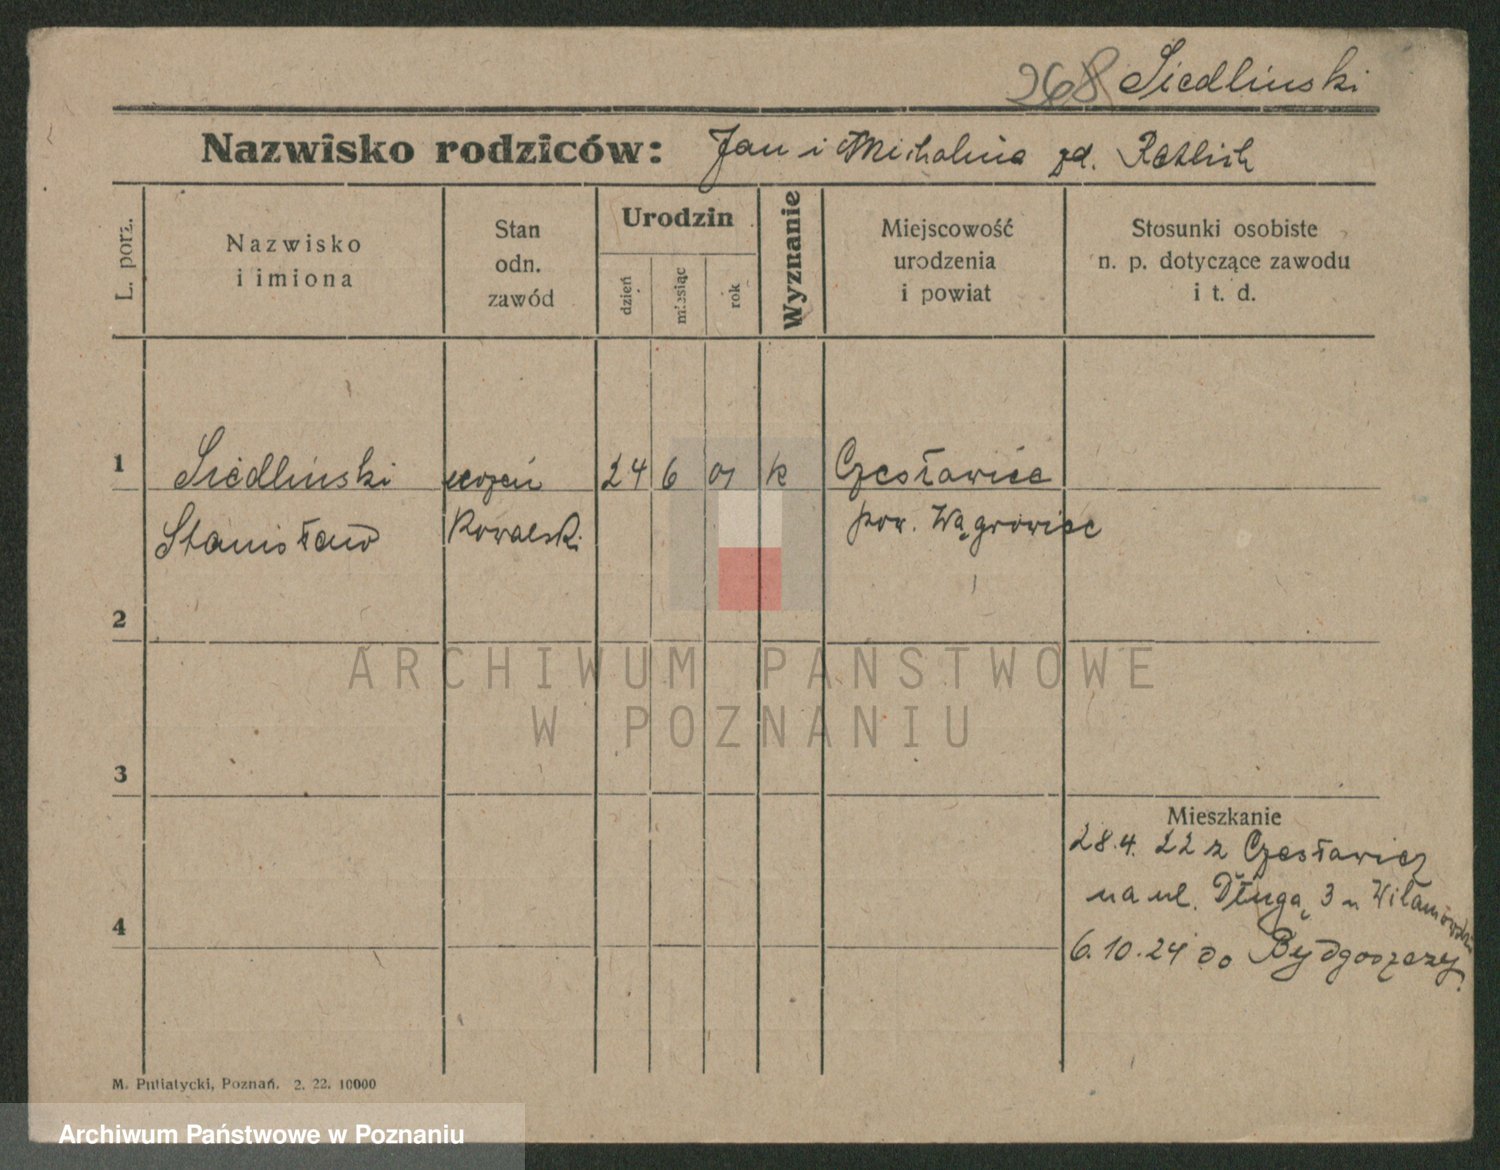 268 Siedlinski
Nazwisko rodziców: Jan i Michalina zd. Retlich
L. porz.
Nazwisko
i imiona
Stan
odn.
zawód
Urodzin
dzień
miesiąc
rok
Wyznanie
Miejscowość
urodzenia
i powiat
Stosunki osobiste
n. p. dotyczące zawodu
i t. d.
1 Siedlinski uczeń 24 6 07 k Czesławice
Stanisław Kowalski pow. Wągrowiec
2
ARCHIWUM PAŃSTWOWE
W POZNANIU
3
Mieszkanie
28.4.22 z Czesławic
na ul. Długą 3 u
4
6.10.24 do Bydgoszczy.
M. Putiatycki, Poznań. 2. 22. 10000
Archiwum Państwowe w Poznaniu